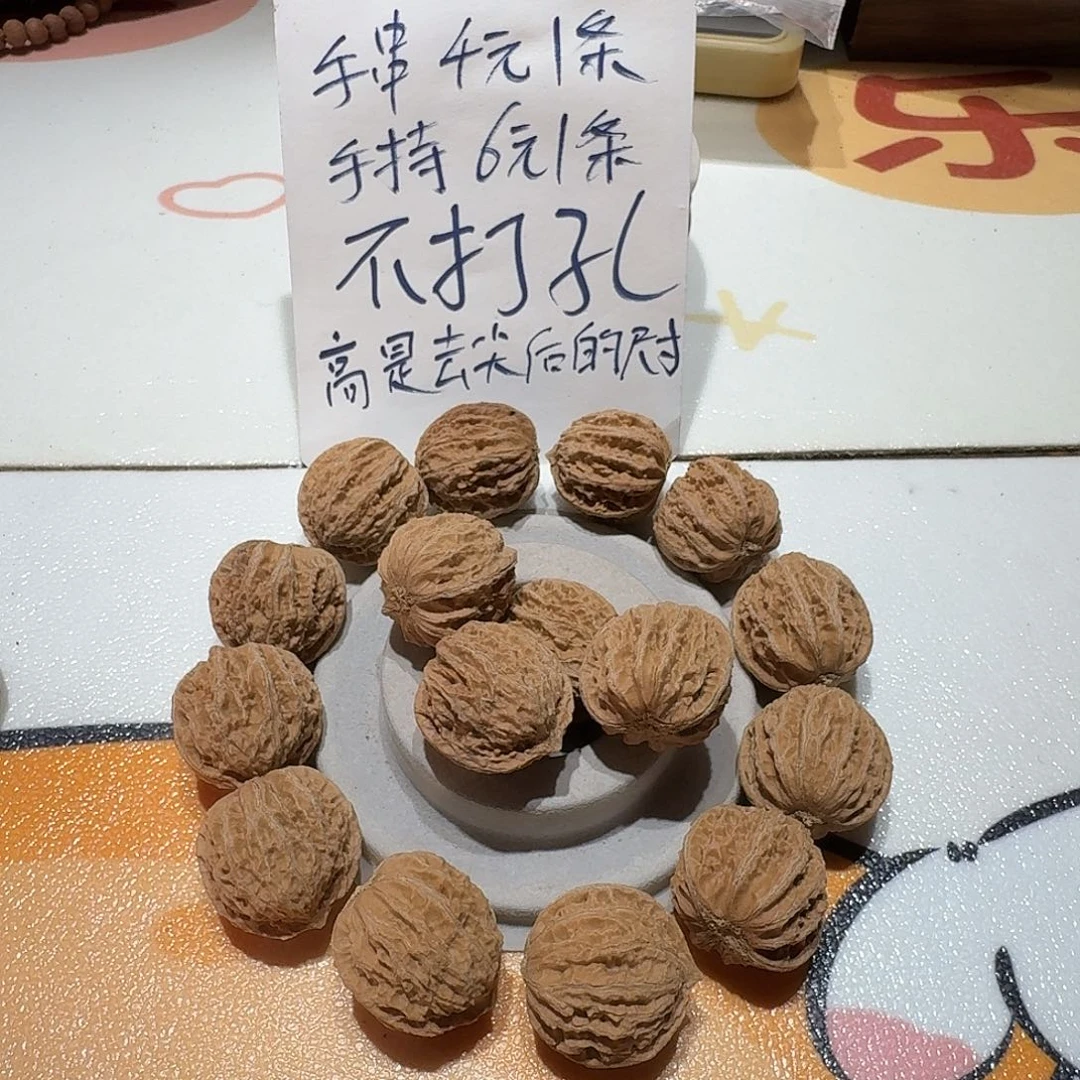 手串 4元1条
手持 6元1条
不打孔
高是去尖后的尺寸
乐